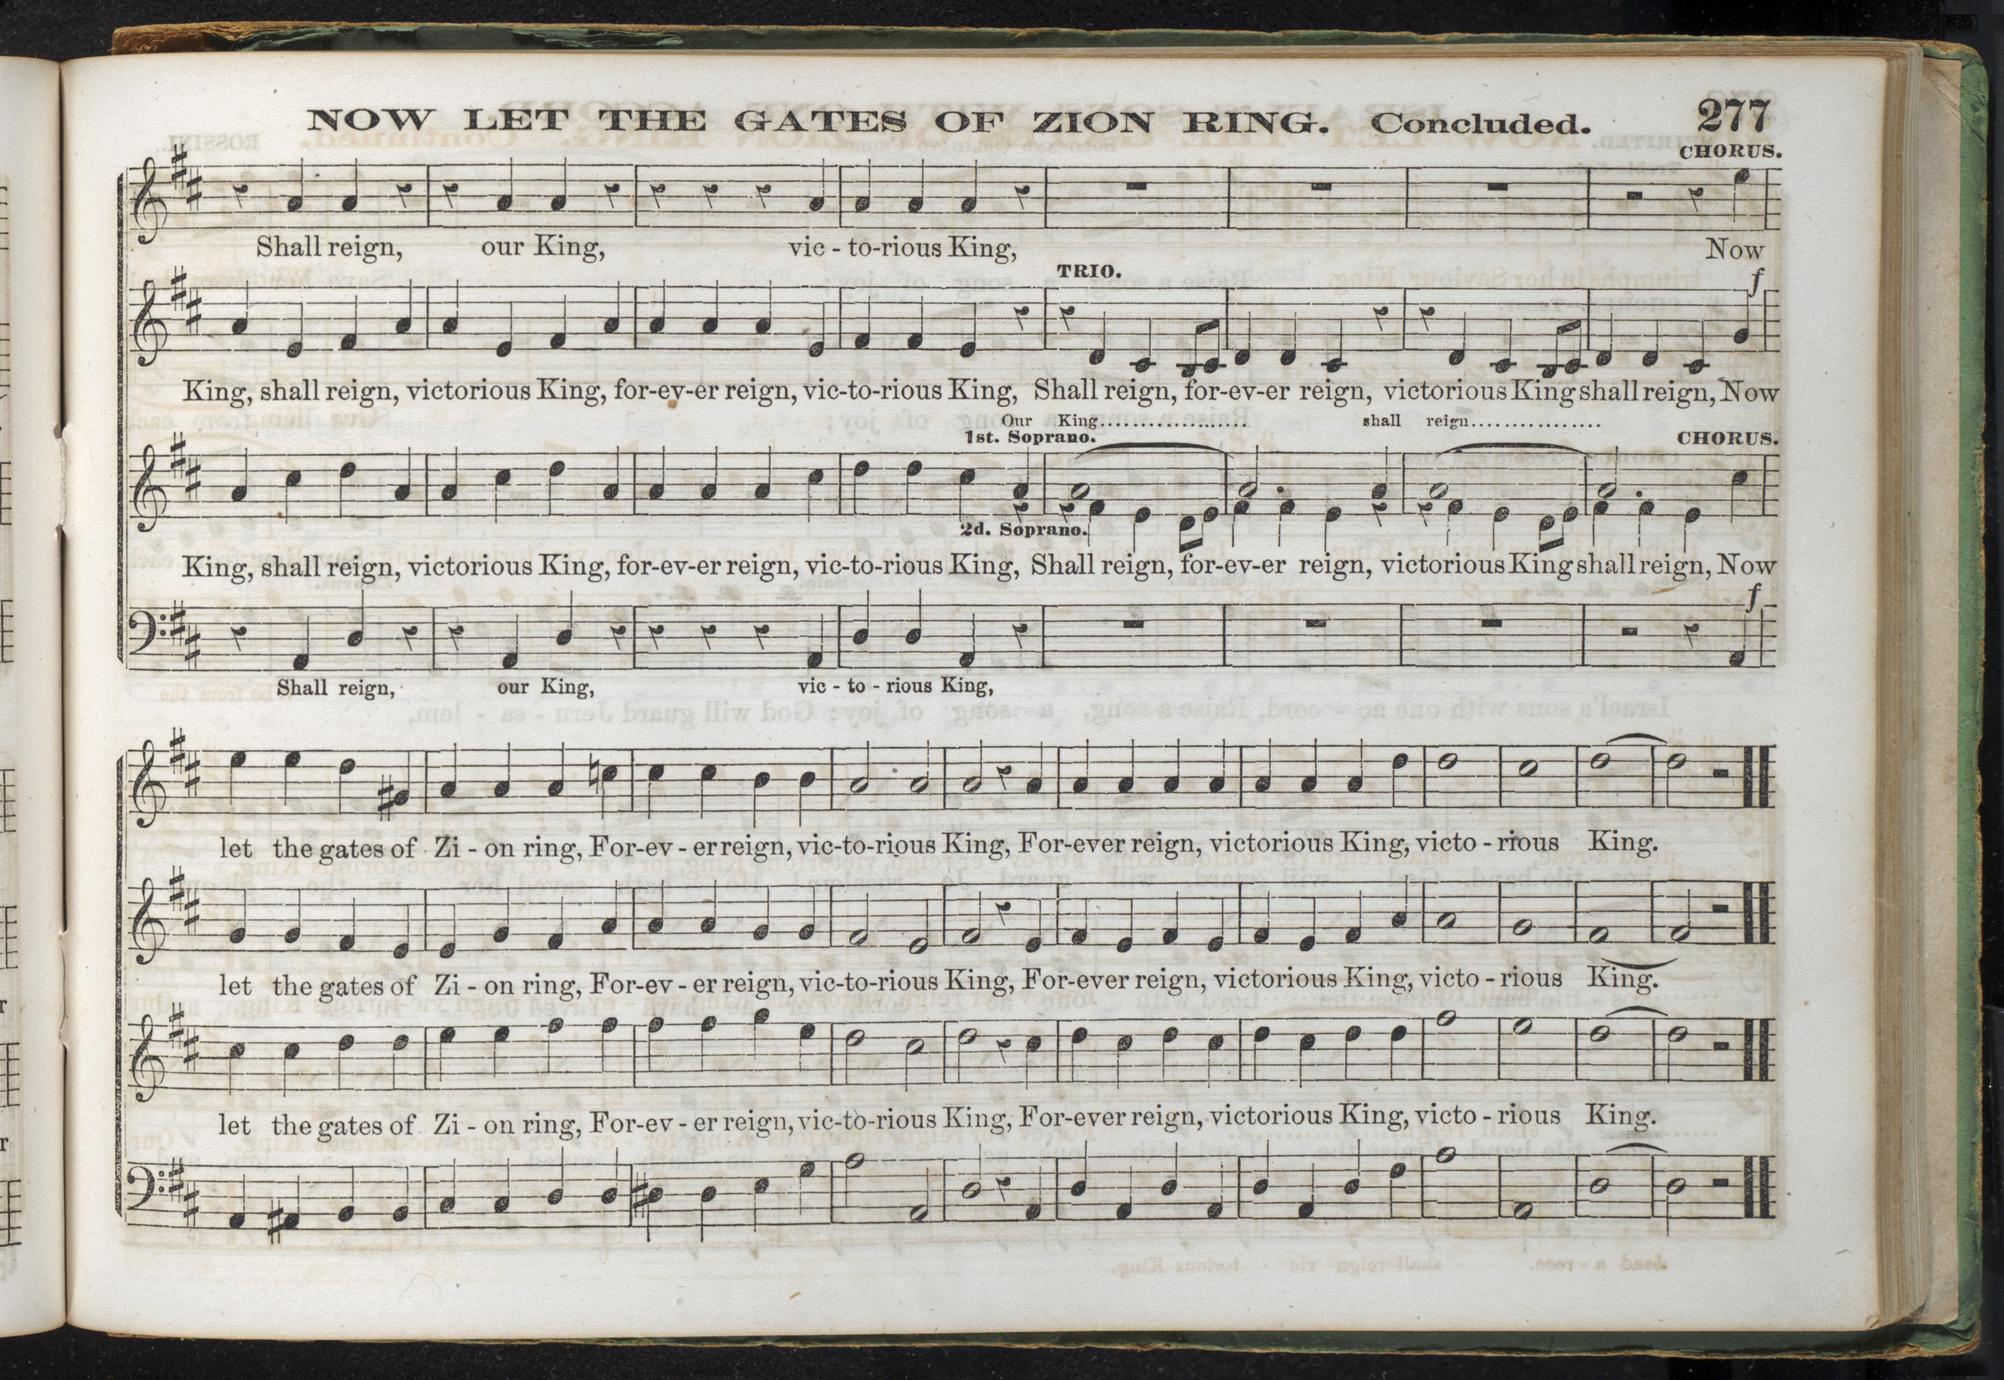 NOW LET THE GATES OF ZION RING. Concluded. 277
CHORUS.
Shall reign, our King, vic - to-rious King, Now
TRIO. f
King, shall reign, victorious King, for-ev-er reign, vic-to-rious King, Shall reign, for-ev-er reign, victorious King shall reign, Now
Our King.................... shall reign................
1st. Soprano. CHORUS.
2d. Soprano.
King, shall reign, victorious King, for-ev-er reign, vic-to-rious King, Shall reign, for-ev-er reign, victorious King shall reign, Now
f
Shall reign, our King, vic - to - rious King,
let the gates of Zi - on ring, For-ev - er reign, vic-to-rious King, For-ever reign, victorious King, victo - rious King.
let the gates of Zi - on ring, For-ev - er reign, vic-to-rious King, For-ever reign, victorious King, victo - rious King.
let the gates of Zi - on ring, For-ev - er reign, vic-to-rious King, For-ever reign, victorious King, victo - rious King.